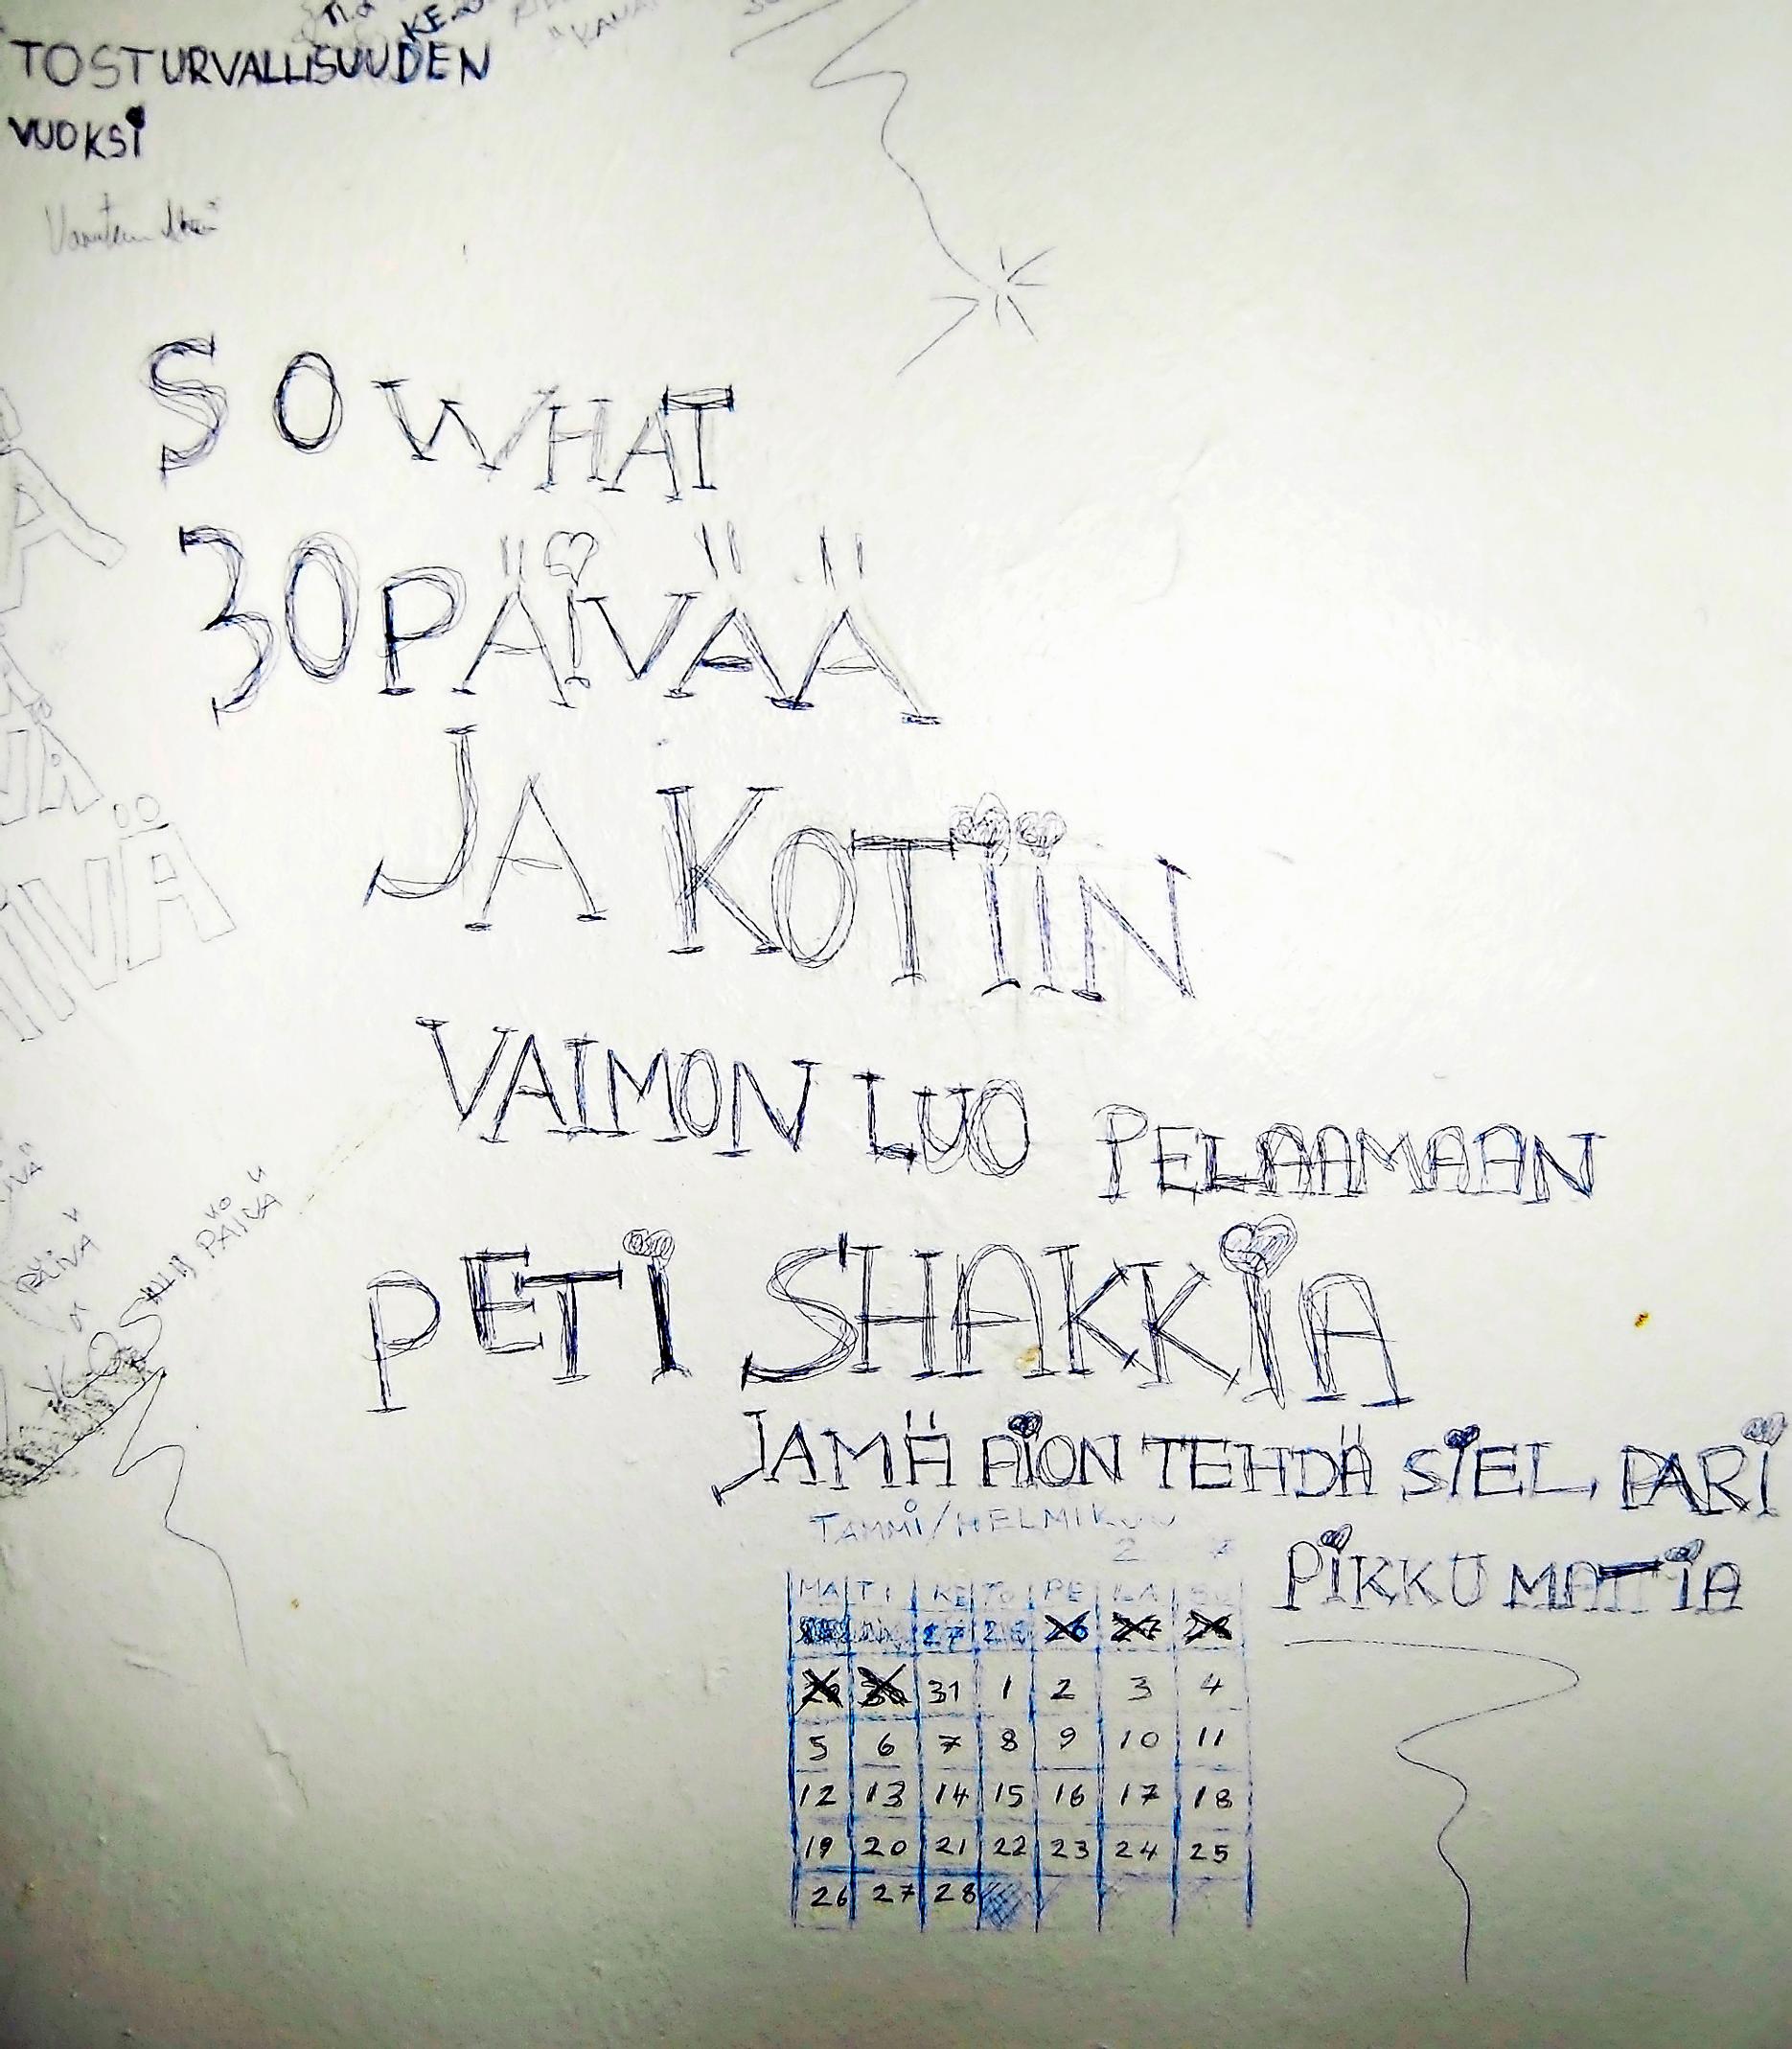 TOSTURVALLISUUDEN
VUOKSI
SO WHAT
30 PÄIVÄÄ
JA KOTIIN
VAIMON LUO PELAAMAAN
PETI SHAKKIA
JA MÄ AION TEHDÄ SIEL, PARI
PIKKU MATTIA
TAMMI/HELMIKUU
MA TI KE TO PE LA SU
27 26 27 28
29 30 31 1 2 3 4
5 6 7 8 9 10 11
12 13 14 15 16 17 18
19 20 21 22 23 24 25
26 27 28
PÄIVÄ
PÄIVÄ
IVÄ